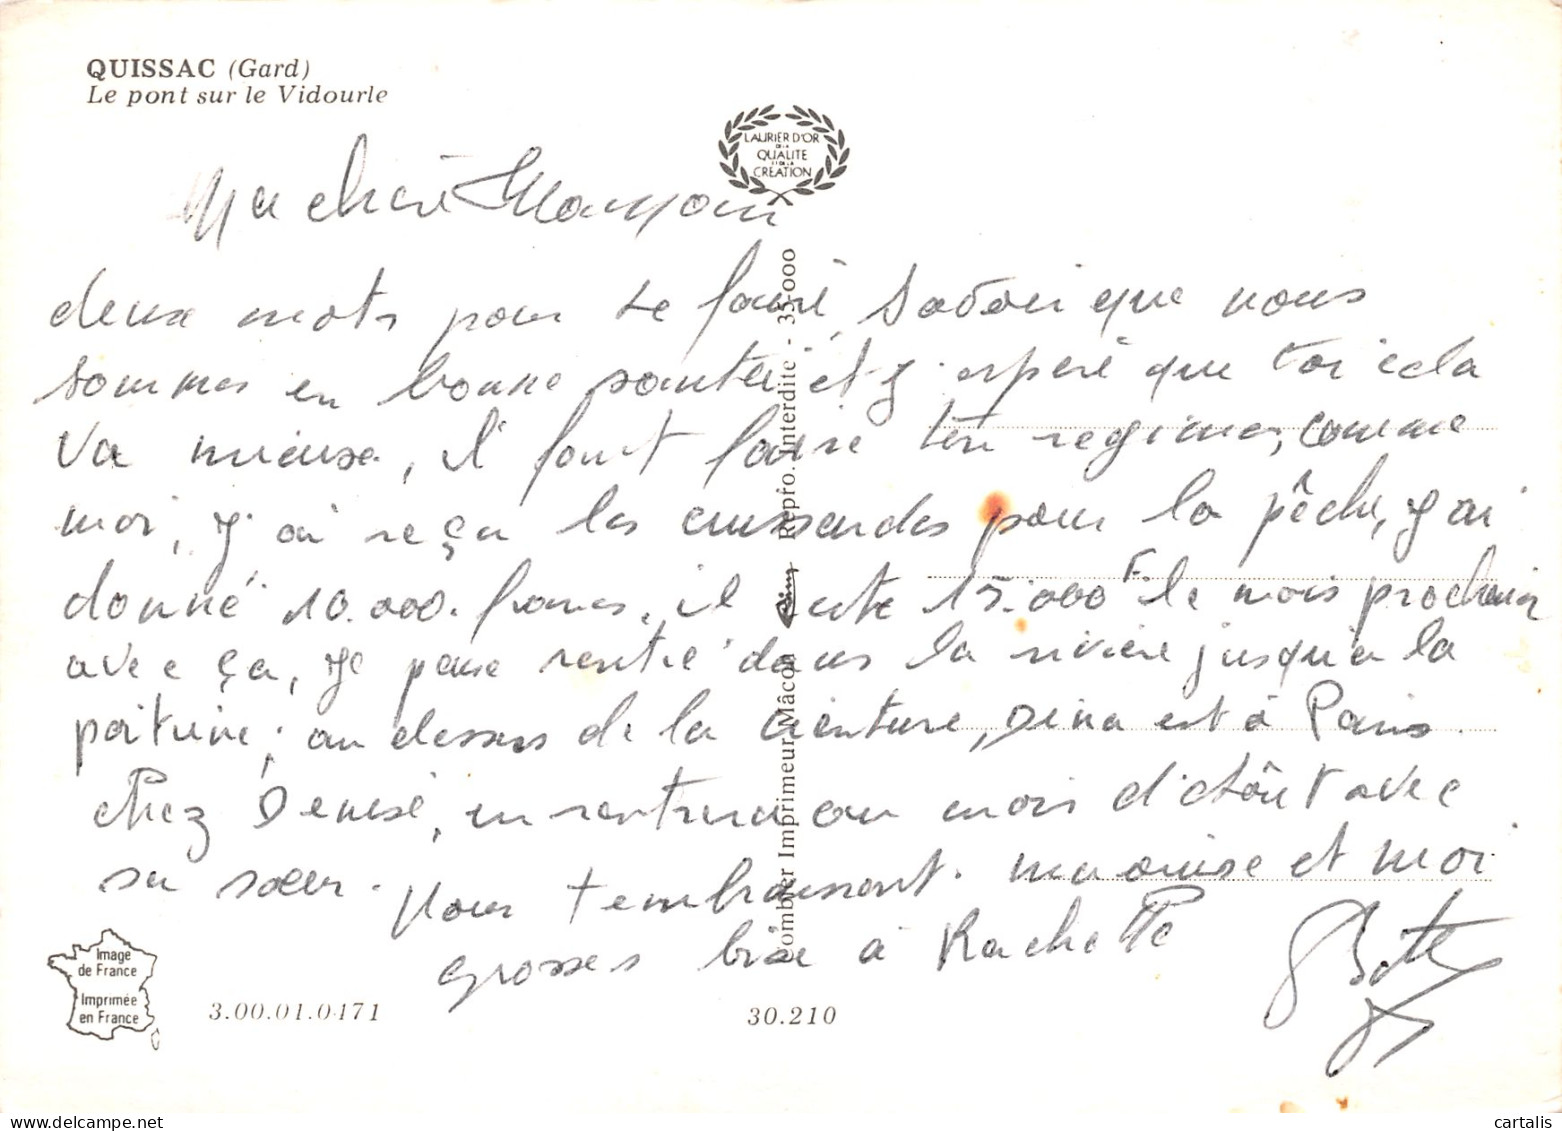 QUISSAC (Gard)
Le pont sur le Vidourle
LAURIER D'OR
DE LA
QUALITE
ET DE LA
CRÉATION
Ma cheré Maman
deux mots pour te fairé savoir que nous
sommes en bonne santér et j'esperé que toi cela
va mieuse, il faut faire ton regimes, comme
moi, J'ai reçu les cuissardes pour la pêche, J'ai
donné 10.000. francs, il reste 15.000F le mois prochain
avec ça, Je peuse rentré dans la rivière jusqu'a la
poitrine, au dessus de la ceinture, Dina est à Paris
chez Denisé, en rentrera au mois d'août avec
sa sœur. Nous t'embrassont. et moi
grosses bise à Rachette
combier Imprimeur Mâcon
Cim
Repro. interdite - 35.000
Image
de France
Imprimée
en France
3.00.01.0471
30.210
www.delcampe.net
cartalis